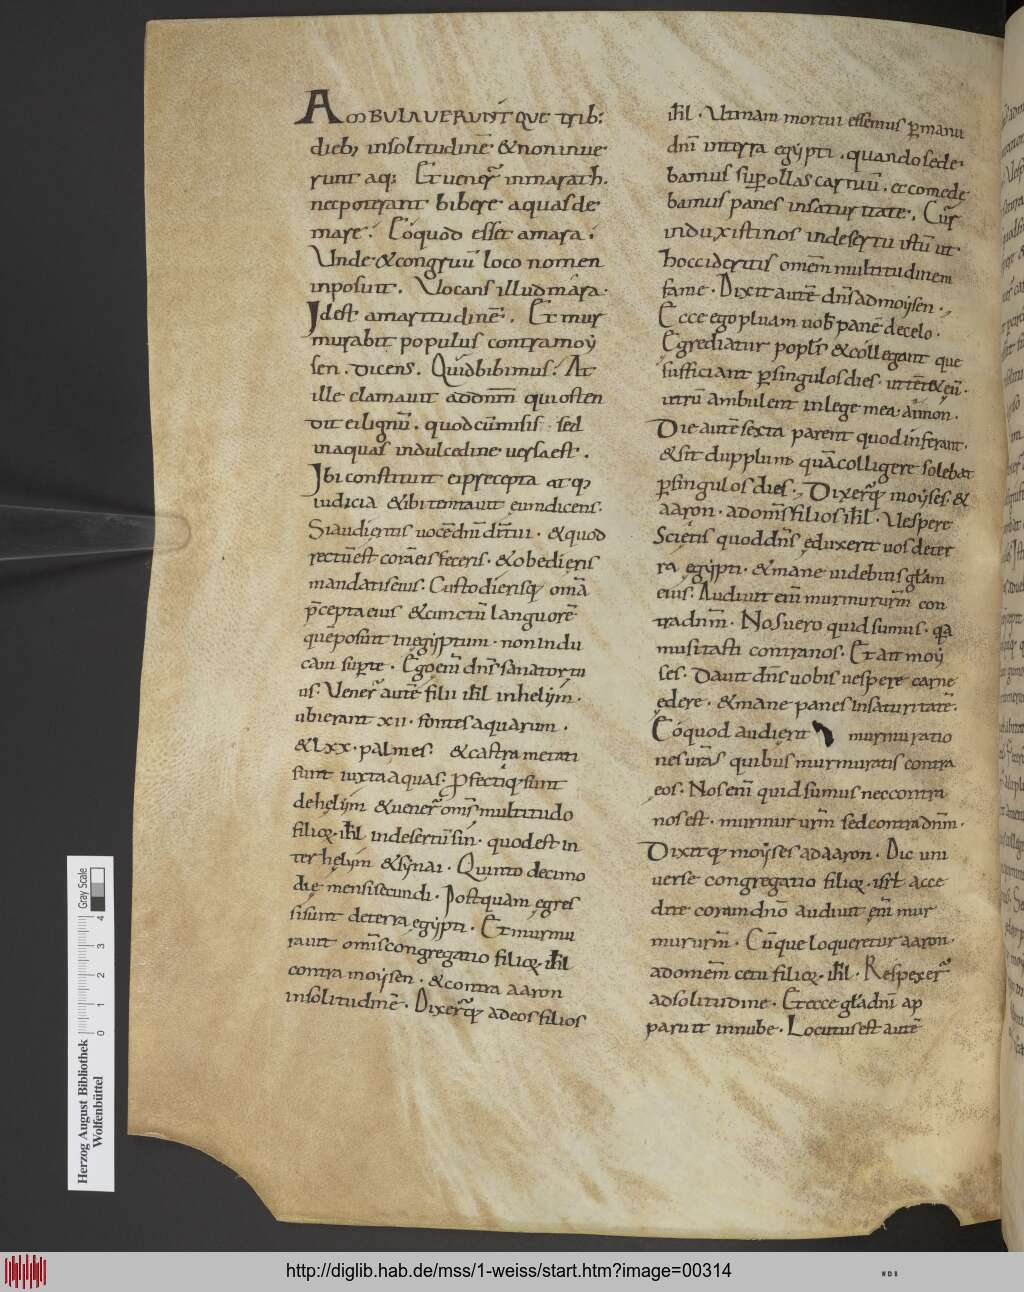 AMBULAUERUNTQUE trib;
dieb; insolitudinē & noninue
runt aq; Et uener̄ inmarath.
necpoterant bibere aquasde
mare. Eoquod esset amara.
Unde & congruū loco nomen
inposuit. Uocans illud mara.
Idest amaritudinē. Et mur
murabit populus contra moy
sen. dicens. Quidbibimus. At
ille clamauit addnm̄ qui osten
dit ei lignū. quodcūmisis sed
inaquas indulcedine uersaest.
Ibi constituit ei precepta at q;
iudicia & ibi temtauit eum dicens.
Siaudieritis uocēdnī dītui. & quod
rectūest corāeis feceris. & obedieris
mandatiseius. Custodierisq; omā
p̄cepta eius & cunctū languorē
quēposuit inegyptum. non indu
cam supte. Egoem̄ dns̄ sanator tu
us. Uener̄ autē filii isrl inhelym.
ubierant xii. fontes aquarum.
& Lxx. palmes. & castra metati
sunt iuxta aquas. Profectiq; sunt
dehelym & uener̄ omīs multitudo
filior. isrl indesertū sin. quodest in
ter helym & synai. Quinto decimo
die mensis ecundi. Postquam egres
sisunt deterra egypti. Et murmu
rauit omīs congregatio filior. isrl
contra moysen. & contra aaron
insolitudinē. Dixer̄q; adeos filios
isrl. Utinam mortui essemus p manū
dnī interra egypti. quando sede
bamus sup ollas carniū. et comede
bamus panes insaturitate. Cūr
induxisti nos indesertū istū ut
hoccideritis omēm multitudinem
fame. Dixit autē dns̄ admoysen.
Ecce ego pluam uob̄ panē decelo.
Egrediatur popl̄s & collegant que
sufficiant p singulosdies. ut tēte eū.
utrū ambulent inlege mea. annon.
Die autē sexta parent quodinferant.
& sit dupplum quācolligere solebat
p singulos dies. Dixer̄q; moyses. &
aaron. adomīs filios isrl. Uespere
Scietis quoddns̄ eduxerit uos deter
ra egypti. & mane uidebitis glām
eius. Audiuit em̄ murmurum̄ con
tradnm̄. Nosuero quid sumus. qa
musitasti contranos. Et ait moy
ses. Dauit dns̄ uobis uespere carne
edere. & mane panes insaturitate.
Eoquod audierit murmuratio
nes urās quibus murmuratis contra
eos. Nos em̄ quid sumus nec contra
nos est. murmur urm̄ sed contradnm̄.
Dixitq; moyses ad aaron. Dic uni
uerse congregatio filior. isrl acce
dite coramdnō audiuit em̄ mur
murum̄. Cūque loqueretur aaron.
adomēm cetu filior. isrl. Respexer̄
adsolitudine. Etecce glā dnī ap
paruit innube. Locutusest autē
Herzog August Bibliothek
Wolfenbüttel
0 1 2 3 4
Gray Scale
http://diglib.hab.de/mss/1-weiss/start.htm?image=00314